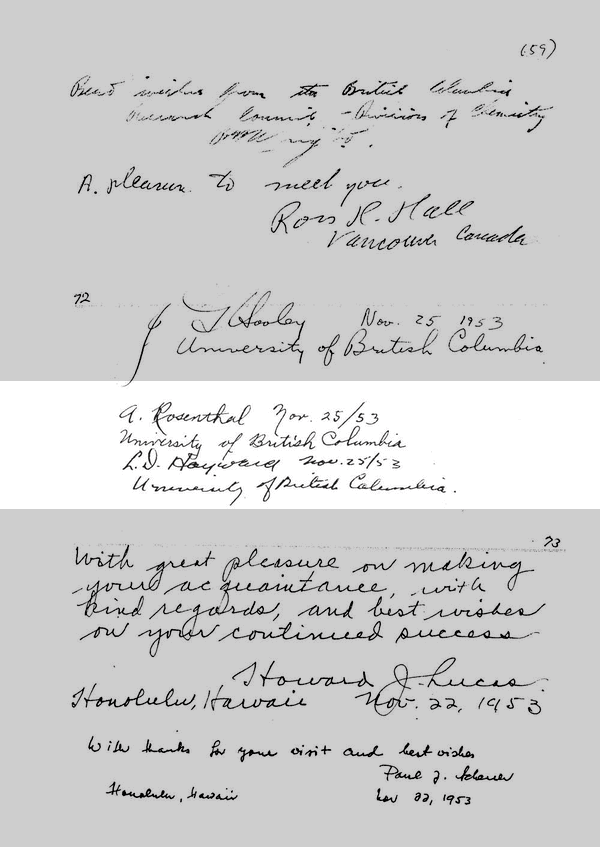 (59)
Best wishes from the British Columbia
Research Council, - Division of Chemistry
A. pleasure to meet you.
Ross H. Hall
Vancouver Canada
72
Hooley Nov. 25 1953
University of British Columbia
A. Rosenthal Nov. 25/53
University of British Columbia
L.D. Hayward Nov. 25/53
University of British Columbia.
73
With great pleasure on making
your acquaintance, with
kind regards, and best wishes
on your continued success
Howard J. Lucas.
Honolulu, Hawaii Nov. 22, 1953
With thanks for your visit and best wishes
Paul J. Scheuer
Honolulu, Hawaii Nov 22, 1953